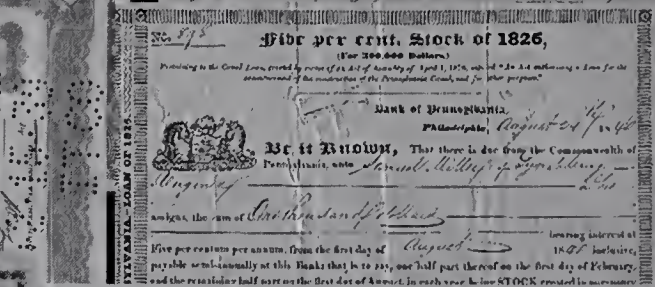 No. 898
Five per cent. Stock of 1826,
(For 300,000 Dollars.)
Pertaining to the Canal Loan, created by virtue of an Act of Assembly of April 1, 1826, "An Act authorizing a Loan for the
commencement of the construction of the Pennsylvania Canal, and for other purposes."
Bank of Pennsylvania,
Philadelphia, August 18
Be it Known, That there is due from the Commonwealth of
Pennsylvania, unto Samuel Miller of Lynchburg
Virginia his
assigns, the sum of One thousand Dollars
bearing interest at
Five per centum per annum, from the first day of August 18 inclusive,
payable semi-annually at this Bank; that is to say, one half part thereof on the first day of February,
and the remaining half part on the first day of August, in each year, being STOCK created in pursuance
SYLVANIA.—LOAN OF 1826.